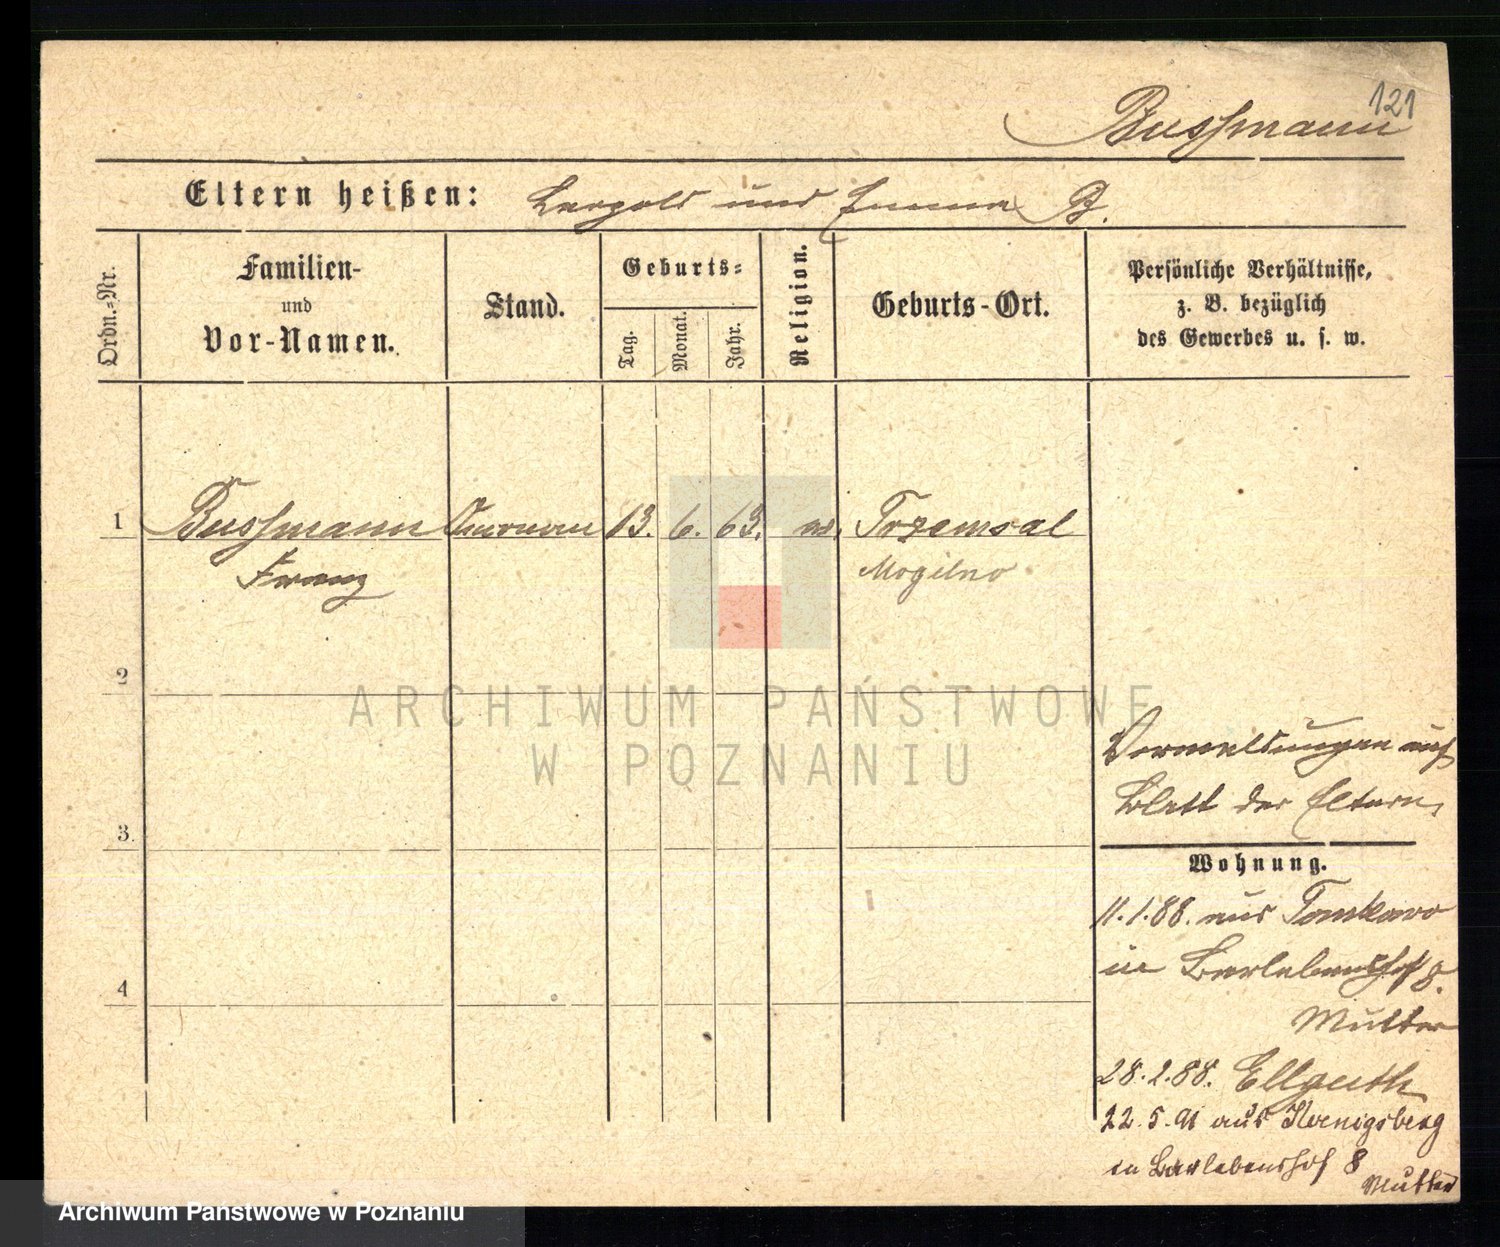 121
Bussmann
Eltern heißen: Leopold und Emma B.
Ordn.-Nr.
Familien-
und
Vor-Namen.
Stand.
Geburts-
Tag.
Monat.
Jahr.
Religion.
Geburts-Ort.
Persönliche Verhältnisse,
z. B. bezüglich
des Gewerbes u. s. w.
1 Bussmann 13. 6. 63. Trzemsal
Franz Mogilno
2
3.
4
ARCHIWUM PAŃSTWOWE
W POZNANIU
Vormeldungen auf
Blatt der Eltern,
Wohnung.
11.1.88. aus Tomkowo
in Berlebenshof 8.
Mutter
28.2.88. Ellguth
22.5.91 aus Koenigsberg
in Berlebenshof 8
Mutter
Archiwum Państwowe w Poznaniu